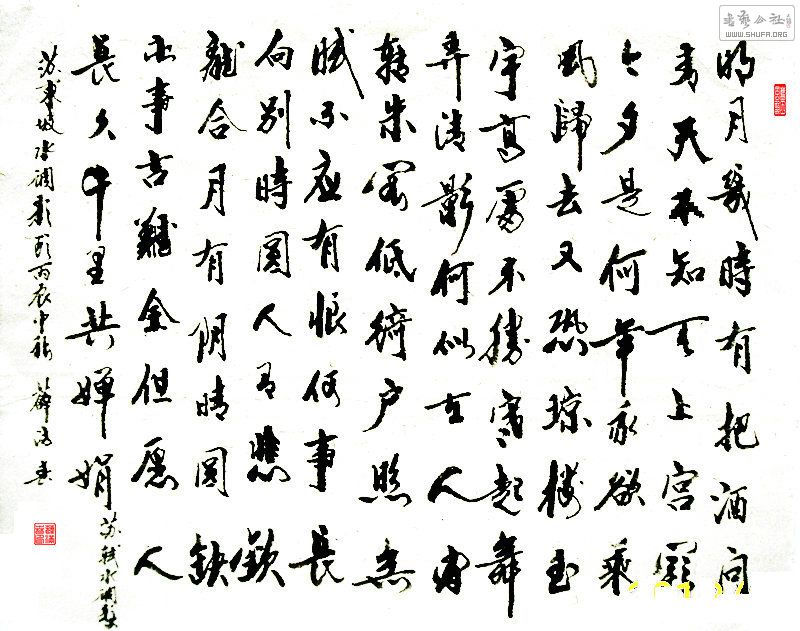 书艺公社
WWW.SHUFA.ORG
明月幾時有把酒问
青天不知天上宫闕
今夕是何年我欲乘
風歸去又恐琼楼玉
宇高處不勝寒起舞
弄清影何似在人间
轉朱阁低绮户照無
眠不应有恨何事長
向别時圆人有悲歓
離合月有阴晴圆缺
此事古難全但愿人
長久千里共婵娟
苏轼水调歌
苏東坡水调歌頭丙辰中秋